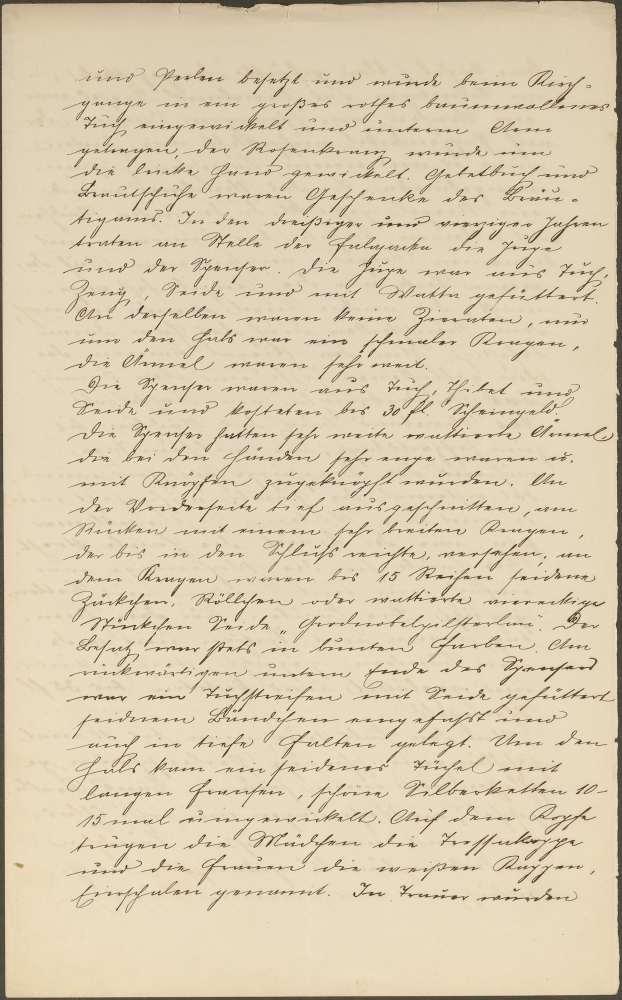 und Perlen besetzt und wurde beim Kirch-
gange in ein großes rothes baumwollenes
Tuch eingewickelt und unterm Arm
getragen, der Rosenkranz wurde um
die linke Hand gewickelt. Gebetbuch und
Brautschuhe waren Geschenke des Bräu-
tigams. In den dreißiger und vierziger Jahren
traten an Stelle der die Juppe
und der Spenser. Die Juppe war aus Tuch,
Zeug, Seide und mit Watta gefüttert.
An derselben waren keine Zieraten, nur
um den Hals war ein schmaler Kragen,
die Ärmel waren sehr weit.
Die Spenser waren aus Tuch, Thibet und
Seide und kosteten bis 30 fl Scheingeld.
Die Spenser hatten sehr weite wattierte Ärmel
die bei den Händen sehr enge waren u.
mit Knöpfen zugeknöpft wurden. An
der Vorderseite tief ausgeschnitten, am
Rücken mit einem sehr breiten Kragen,
der bis in den Schluß reichte, versehen, an
dem Kragen waren bis 15 Reihen seidene
Zäckchen, Röllchen oder wattierte viereckige
Stückchen Seide „. Der
Besatz war stets in bunten Farben. Am
rückwärtigen untern Ende des Spensers
war ein Tuchstreifen mit Seide gefüttert
seidenem Bändchen eingefaßt und
auch in tiefe Falten gelegt. Um den
Hals kam ein seidenes Tüchel mit
langen Fransen, schöne Silberketten 10-
15 mal umgewickelt. Auf dem Kopfe
trugen die Mädchen die
und die Frauen die weißen Kappen,
genannt. In Trauer wurden